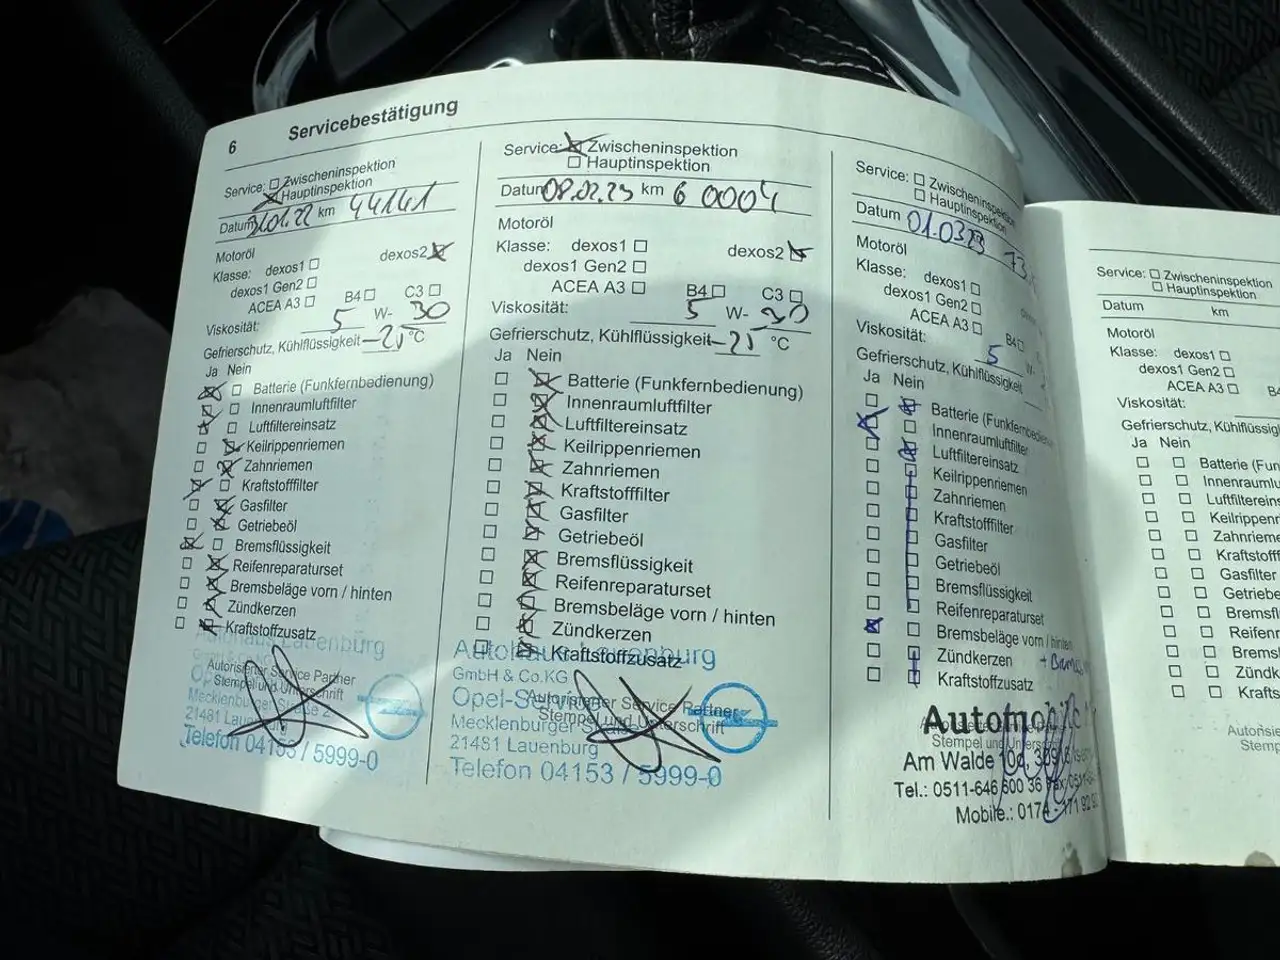 6 Servicebestätigung
Service: Zwischeninspektion
Hauptinspektion
Datum 31.01.22 km 44141
Motoröl
Klasse: dexos1 dexos2
dexos1 Gen2
ACEA A3 B4 C3
Viskosität: 5 W- 30
Gefrierschutz, Kühlflüssigkeit °C
Ja Nein
Batterie (Funkfernbedienung)
Innenraumluftfilter
Luftfiltereinsatz
Keilrippenriemen
Zahnriemen
Kraftstofffilter
Gasfilter
Getriebeöl
Bremsflüssigkeit
Reifenreparaturset
Bremsbeläge vorn / hinten
Zündkerzen
Kraftstoffzusatz
Autohaus Lauenburg
GmbH & Co.KG
Autorisierter Service Partner
Stempel und Unterschrift
Mecklenburger Straße 2
21481 Lauenburg
Telefon 04153 / 5999-0
Service: Zwischeninspektion
Hauptinspektion
Datum 08.02.23 km 60004
Motoröl
Klasse: dexos1 dexos2
dexos1 Gen2
ACEA A3 B4 C3
Viskosität: 5 W- 30
Gefrierschutz, Kühlflüssigkeit °C
Ja Nein
Batterie (Funkfernbedienung)
Innenraumluftfilter
Luftfiltereinsatz
Keilrippenriemen
Zahnriemen
Kraftstofffilter
Gasfilter
Getriebeöl
Bremsflüssigkeit
Reifenreparaturset
Bremsbeläge vorn / hinten
Zündkerzen
Kraftstoffzusatz
Autohaus Lauenburg
GmbH & Co.KG
Opel-Service
Autorisierter Service Partner
Stempel und Unterschrift
Mecklenburger
21481 Lauenburg
Telefon 04153 / 5999-0
Service: Zwischeninspektion
Hauptinspektion
Datum 73
Motoröl
Klasse: dexos1
dexos1 Gen2
ACEA A3 B4
Viskosität: 5 W-
Gefrierschutz, Kühlflüssigkeit
Ja Nein
Batterie (Funkfernbedienung
Innenraumluftfilter
Luftfiltereinsatz
Keilrippenriemen
Zahnriemen
Kraftstofffilter
Gasfilter
Getriebeöl
Bremsflüssigkeit
Reifenreparaturset
Bremsbeläge vorn / hinten
Zündkerzen
Kraftstoffzusatz
Automobile
Stempel und Unterschrift
Am Walde 10d,
Tel.: 0511-646 600 36
Mobile.: 0174 - 171 92
Service: Zwischeninspektion
Hauptinspektion
Datum km
Motoröl
Klasse: dexos1
dexos1 Gen2
ACEA A3
Viskosität:
Gefrierschutz, Kühlflüssig
Ja Nein
Batterie (Fun
Innenraumlu
Luftfiltereins
Keilrippenrie
Zahnrieme
Kraftstofff
Gasfilter
Getriebe
Bremsfl
Reifen
Brems
Zündk
Krafts
Autoris
Stemp